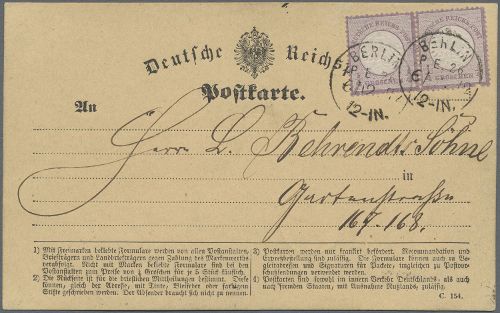 Deutsche Reichs-
Postkarte.
BERLIN
P. E. 26
6/12
12-IN.
BERLIN
P. E. 26
12-IN.
An
Herrn L. Behrendt Söhne
in
Gartenstraße
167-168.
1) Mit Freimarken beklebte Formulare werden von allen Postanstalten,
Briefträgern und Landbriefträgern gegen Zahlung des Markenwerths
verabfolgt. Nicht mit Marken beklebte Formulare sind bei den
Postanstalten zum Preise von ¼ Groschen für je 5 Stück käuflich.
2) Die Rückseite ist für die brieflichen Mittheilungen bestimmt. Diese
können, gleich der Adresse, mit Tinte, Bleifeder oder farbigen
Stifte geschrieben werden. Der Absender braucht sich nicht zu nennen.
3) Postkarten werden nur frankirt befördert. Recommandation und
Expreßbestellung sind zulässig. Die Formulare können auch zu Be-
gleitadressen und Signaturen für Packete, imgleichen zu Postvor-
schußsendungen verwendet werden.
4) Postkarten sind sowohl im innern Verkehr Deutschlands als auch
nach fremden Staaten, mit Ausnahme Rußlands, zulässig.
C. 154.